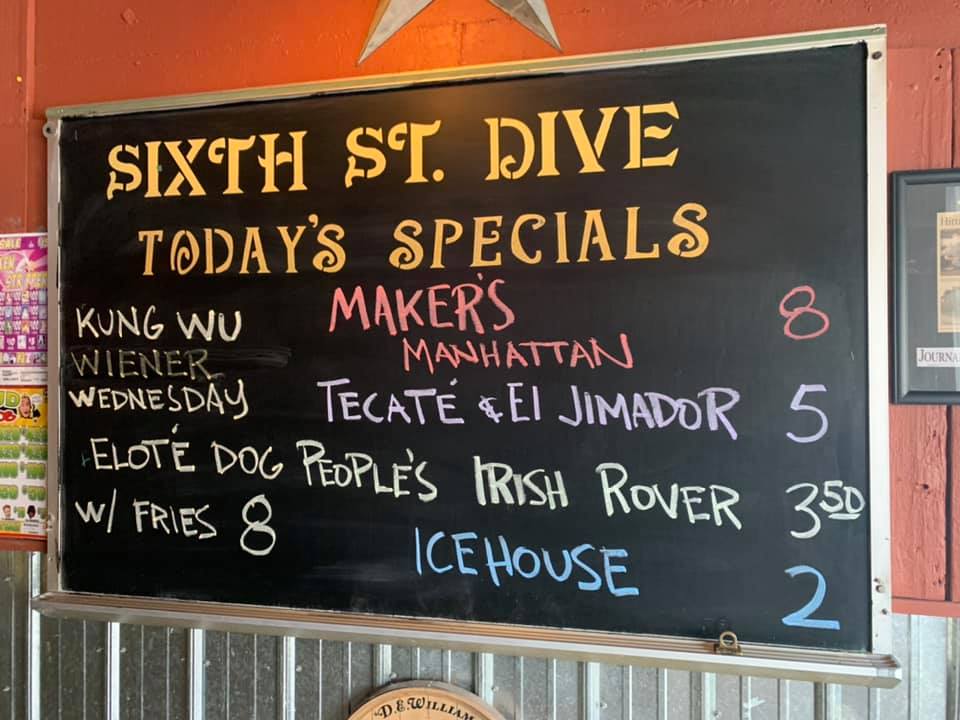 SIXTH ST. DIVE
TODAY'S SPECIALS
KUNG WU
WIENER
WEDNESDAY
ELOTÉ DOG
W/ FRIES 8
MAKER'S 8
MANHATTAN
TECATÉ & El JIMADOR 5
PEOPLE'S IRISH ROVER 3 50
ICEHOUSE 2
SALE
JOURNA
"D.E. WILLIAM